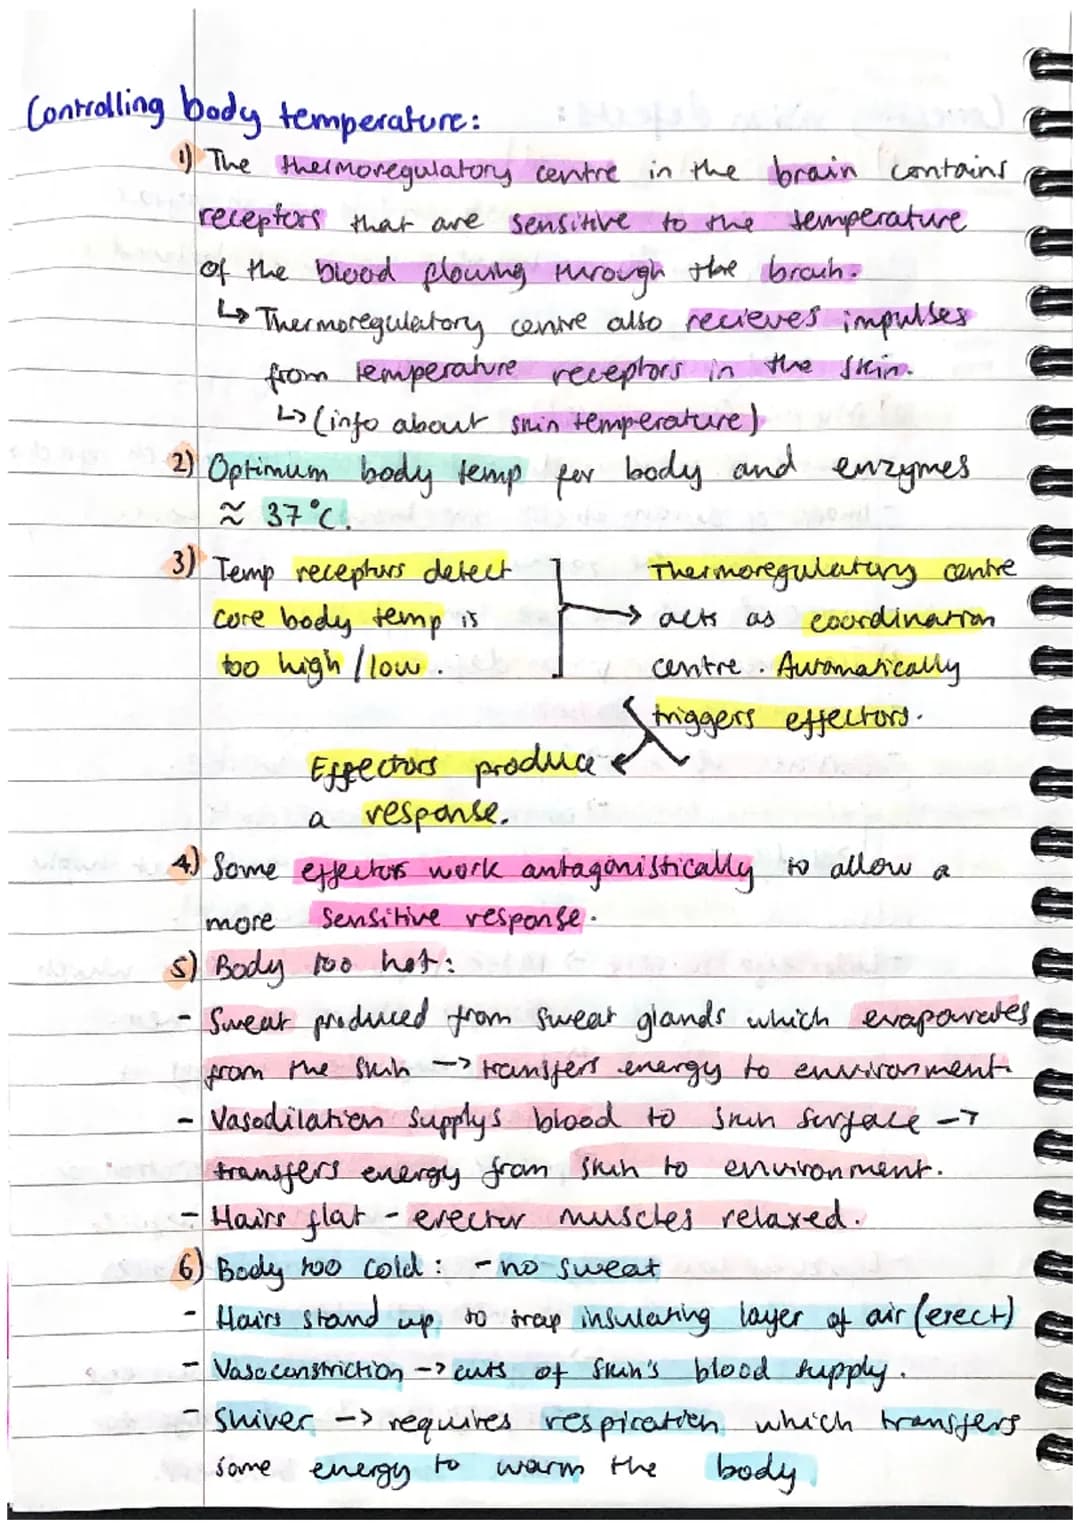 Controlling body temperature:
1) The thermoregulatory centre in the brain contains
receptors that are sensitive to the temperature
of the blood flowing through the brain.
↳ Thermoregulatory centre also recieves impulses
from temperature receptors in the skin.
↳ (info about skin temperature)
2) Optimum body temp for body and enzymes
≈ 37°C.
3) Temp receptors detect
core body temp is
too high / low.
Thermoregulatory centre
acts as coordination
centre. Automatically
triggers effectors.
Effectors produce
a response.
4) Some effectors work antagonistically to allow a
more sensitive response.
5) Body too hot:
- Sweat produced from sweat glands which evaporates
from the skin -> transfers energy to environment.
- Vasodilation supplys blood to skin surface ->
transfers energy from skin to environment.
- Hairs flat - erector muscles relaxed.
6) Body too cold: - no sweat
- Hairs stand up to trap insulating layer of air (erect)
- Vasoconstriction -> cuts of skin's blood supply.
- Shiver -> requires respiration which transfers
some energy to warm the body